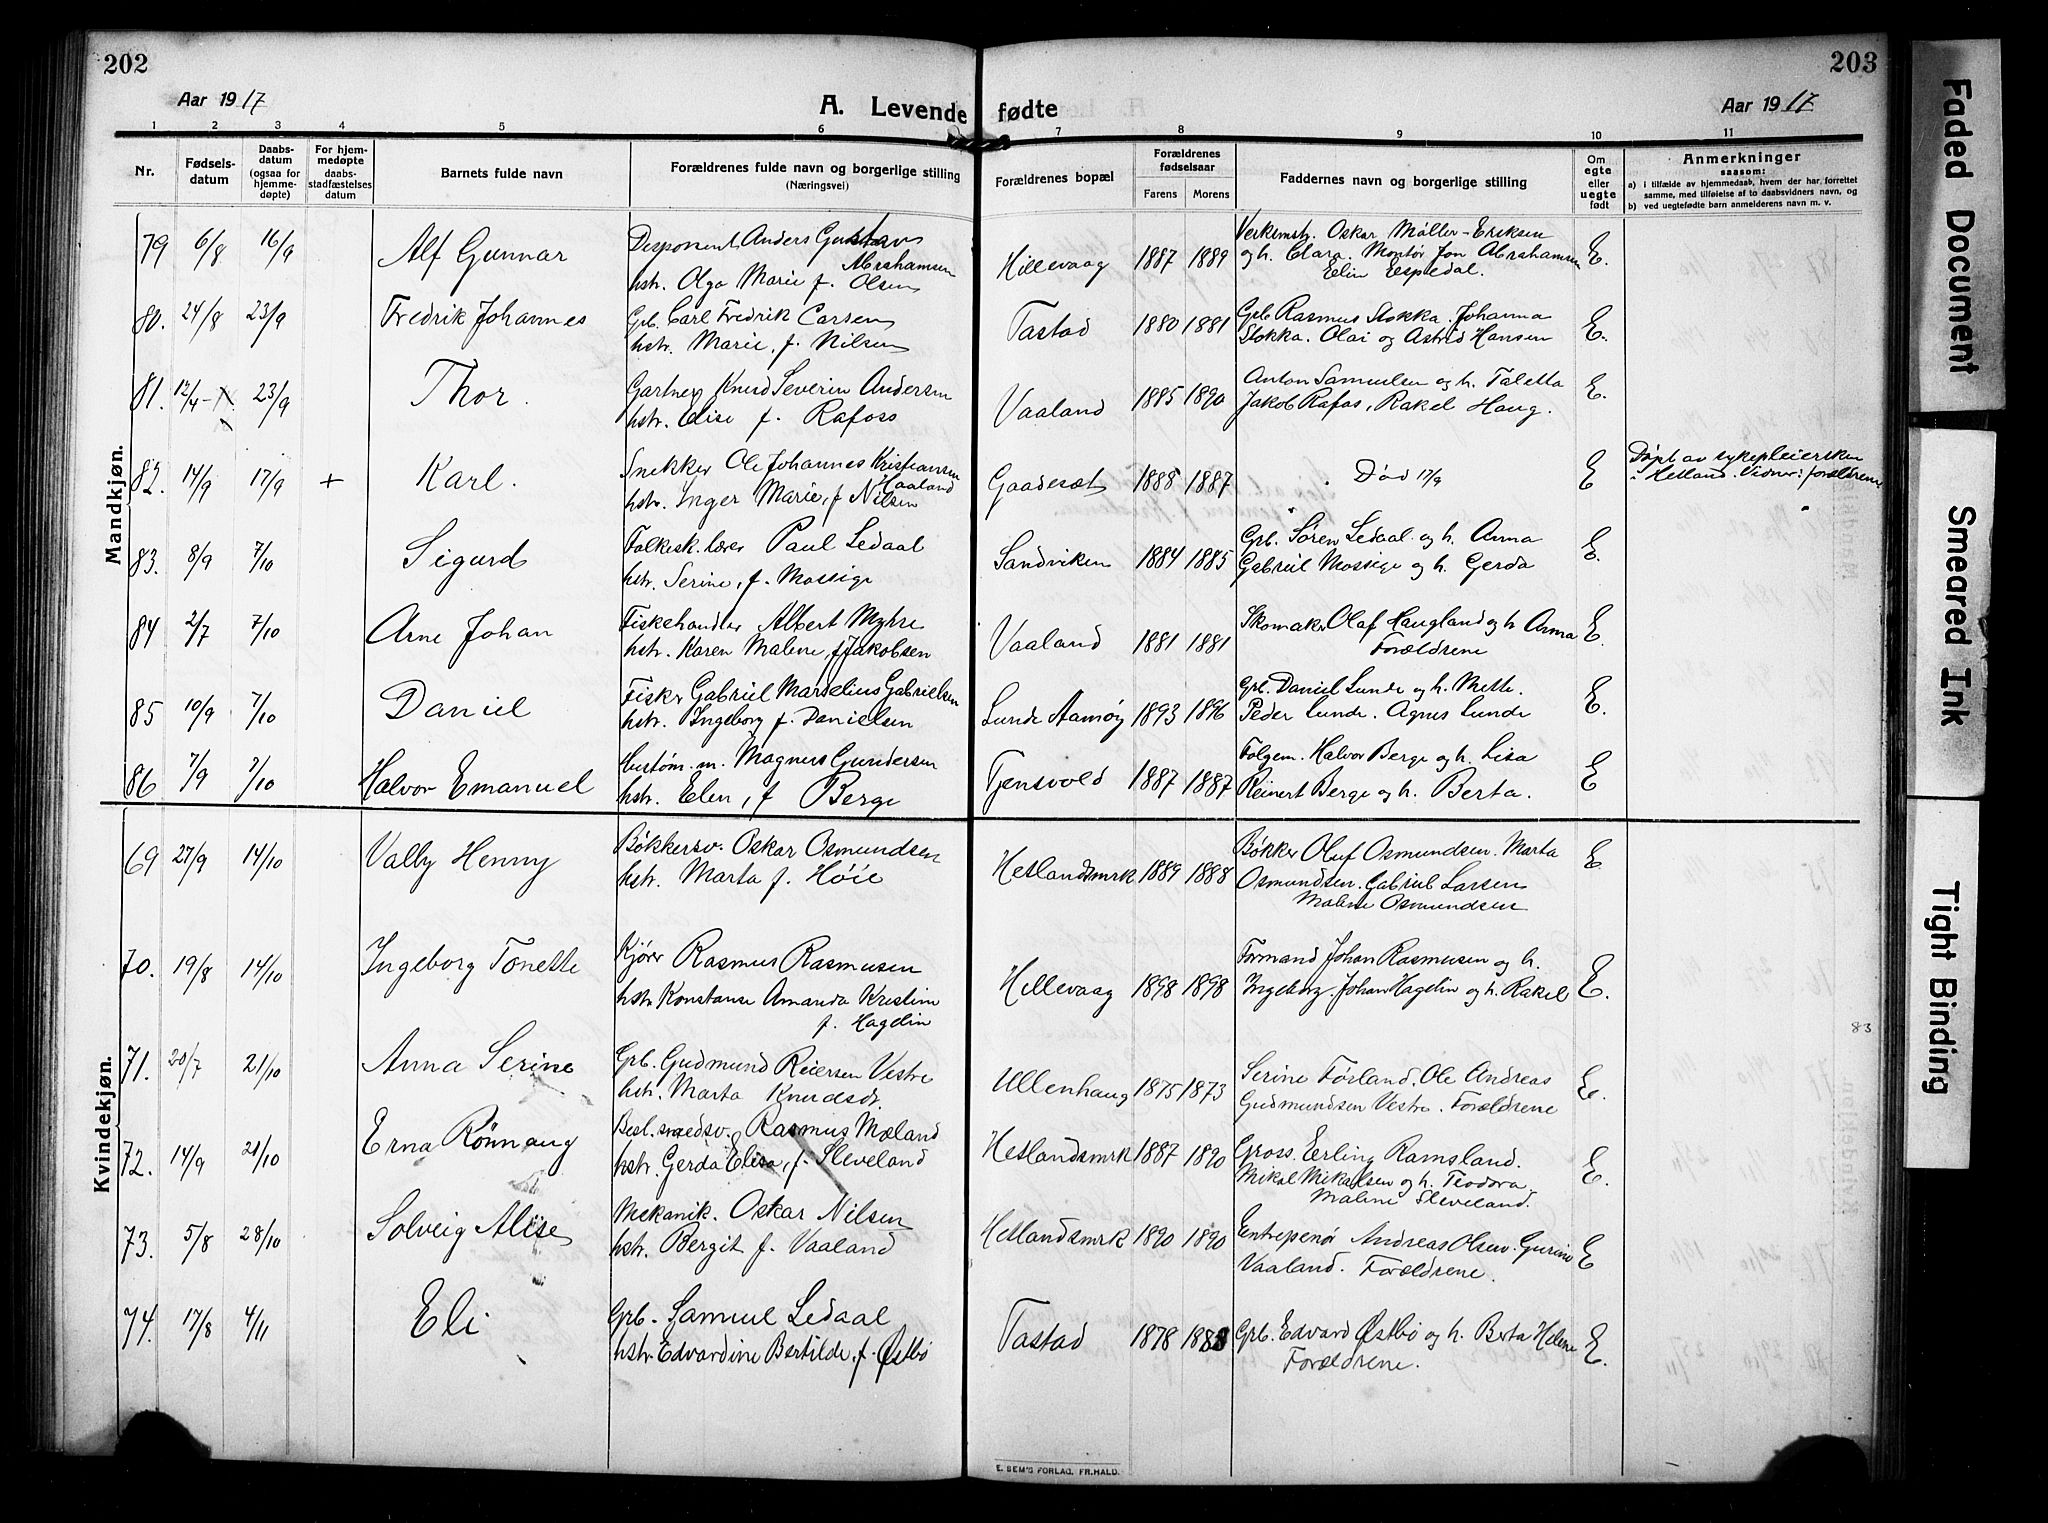 202
203
Aar 1917
A. Levende fødte
Aar 1917
1 2 3 4 5 6 7 8 9 10 11
Nr.
Fødsels-
datum
Daabs-
datum
(ogsaa for
hjemme-
døpte)
For hjem-
medøpte
daabs-
stadfæstelses
datum
Barnets fulde navn
Forældrenes fulde navn og borgerlige stilling
(Næringsvei)
Forældrenes bopæl
Forældrenes
fødselsaar
Farens Morens
Faddernes navn og borgerlige stilling
Om
egte
eller
uegte
født
Anmerkninger
saasom:
a) i tilfælde av hjemmedaab, hvem der har forrettet
samme, med tilføielse af to daabsvidners navn, og
b) ved uegtefødte børn anmelderens navn m. v.
Mandkjøn.
79 6/8 16/9 Alf Gunnar Disponent Anders Gustav Abrahamsen
hstr. Olga Marie f. Olsen
Hillevaag 1887 1889 Verkemstr. Oskar Møller-Eriksen
og h. Clara. Montør Jon Abrahamsen
Elin Espedal. E.
80. 24/8 23/9 Fredrik Johannes Grb. Carl Fredrik Carsen
hstr. Marie, f. Nilsen
Tastad 1880 1881 Grb Rasmus Stokka. Johanna
Stokka. Olai og Astrid Hansen E.
81. 12/4 23/9 Thor. Gartner Knud Severin Andersen
hstr. Elise f. Rafoss
Vaaland 1885 1890 Anton Samuelsen og h. Taletta
Jakob Rafos, Rakel Haug. E.
82. 14/9 17/9 + Karl. Snekker Ole Johannes Kristiansen Haaland
hstr. Inger Marie, f Nilsen
Gaadesæt 1888 1887 Død 17/9 E
Døpt av sykepleiersken
i Hetland. Vidner: forældrene
83. 8/9 7/10 Sigurd Folkesk. lærer Paul Ledaal
hstr. Serine, f. Mossige
Sandviken 1884 1885 Grb. Søren Ledaal og h. Anna
Gabriel Mossige og h. Gerda E.
84 2/7 7/10 Arne Johan Fiskehandler Albert Myhre
hstr. Karen Malene, f Jakobsen
Vaaland 1881 1881 Skomaker Olaf Haugland og h Anna
Forældrene E.
85 10/9 7/10 Daniel Fisker Gabriel Marselius Gabrielsen
hstr. Ingeborg f. Danielsen
Lunde Aamøy 1893 1896 Grb. Daniel Lunde og h. Mette.
Peder Lunde. Agnes Lunde E.
86 7/9 7/10 Halvor Emanuel Magnus Gundersen
hstr. Elen, f Berge
Tjensvold 1887 1887 Halvor Berge og h. Lisa
Reinert Berge og h. Berta. E
Kvindekjøn.
69 27/9 14/10 Valby Henny Bøkkersv. Oskar Osmundsen
hstr. Marta f. Høie
Hetlandsmrk 1889 1888 Bøkker Oluf Osmundsen. Marta
Osmundsen. Gabriel Larsen
Malene Osmundsen E.
70. 19/8 14/10 Ingeborg Tonette Kjører Rasmus Rasmusen
hstr Konstanse Amanda Kristine
f. Hagelin
Hillevaag 1898 1898 Formand Johan Rasmusen og h.
Ingeborg. Johan Hagelin og h. Rakel E.
83
71. 20/7 21/10 Anna Serine Grb. Gudmund Reiersen Vestre
hstr. Marta Knudsdr.
Ullenhaug 1875 1873 Serine Førland. Ole Andreas
Gudmundsen Vestre. Forældrene E.
72. 14/9 21/10 Erna Rönnaug Besl. smedsv. Rasmus Mæland
hstr. Gerda Elisa, f. Sleveland
Hetlandsmrk 1887 1890 Gross. Erling Ramsland.
Mikal Mikalsen og h. Teodora
Malene Sleveland. E.
73. 5/8 28/10 Solveig Alise Mekanik. Oskar Nilsen
hstr. Bergit f. Vaaland
Hetlandsmrk 1890 1890 Entrepenør Andreas Olsen. Gurine
Vaaland. Forældrene. E
74. 17/8 4/11 Eli Grb. Samuel Ledaal
hstr. Edvardine Bertilde f. Østbø
Tastad 1878 1888 Grb. Edvard Østbø og h. Berta Helene
Forældrene. E.
E. SEM'S FORLAG, FR.HALD.
Faded Document
Smeared Ink
Tight Binding